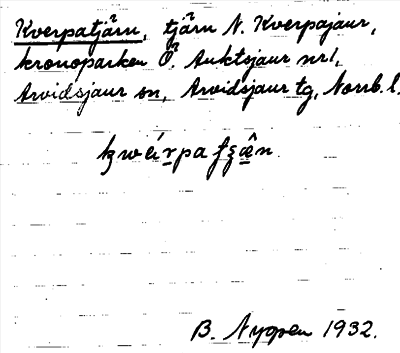 Kverpatjärn, tjärn N. Kverpajaur,
kronoparken Ö. Auktsjaur nr1,
Arvidsjaur sn, Arvidsjaur tg, Norrb. l.
B. Nygren 1932.